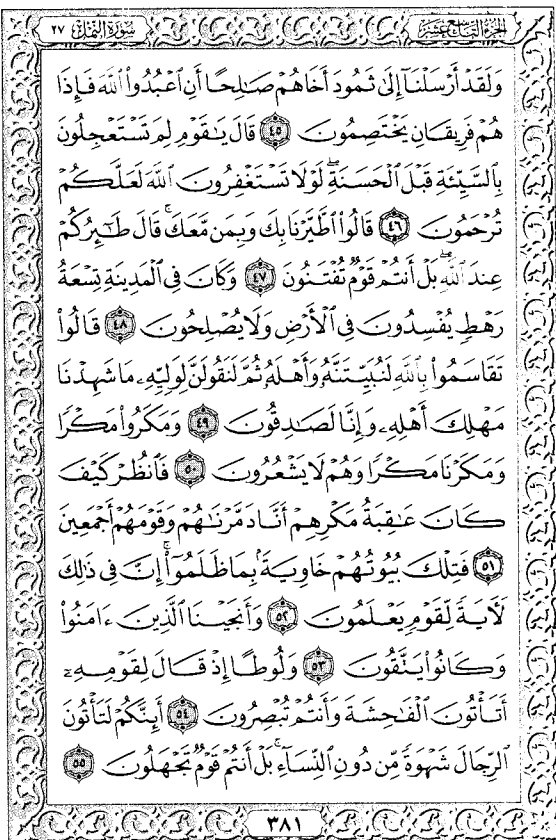 الجزء التاسع عشر
سورة النمل ٢٧
وَلَقَدْ أَرْسَلْنَآ إِلَىٰ ثَمُودَ أَخَاهُمْ صَٰلِحًا أَنِ ٱعْبُدُوا۟ ٱللَّهَ فَإِذَا
هُمْ فَرِيقَانِ يَخْتَصِمُونَ ٤٥ قَالَ يَٰقَوْمِ لِمَ تَسْتَعْجِلُونَ
بِٱلسَّيِّئَةِ قَبْلَ ٱلْحَسَنَةِ ۖ لَوْلَا تَسْتَغْفِرُونَ ٱللَّهَ لَعَلَّكُمْ
تُرْحَمُونَ ٤٦ قَالُوا۟ ٱطَّيَّرْنَا بِكَ وَبِمَن مَّعَكَ ۚ قَالَ طَٰٓئِرُكُمْ
عِندَ ٱللَّهِ ۖ بَلْ أَنتُمْ قَوْمٌ تُفْتَنُونَ ٤٧ وَكَانَ فِى ٱلْمَدِينَةِ تِسْعَةُ
رَهْطٍ يُفْسِدُونَ فِى ٱلْأَرْضِ وَلَا يُصْلِحُونَ ٤٨ قَالُوا۟
تَقَاسَمُوا۟ بِٱللَّهِ لَنُبَيِّتَنَّهُۥ وَأَهْلَهُۥ ثُمَّ لَنَقُولَنَّ لِوَلِيِّهِۦ مَا شَهِدْنَا
مَهْلِكَ أَهْلِهِۦ وَإِنَّا لَصَٰدِقُونَ ٤٩ وَمَكَرُوا۟ مَكْرًا
وَمَكَرْنَا مَكْرًا وَهُمْ لَا يَشْعُرُونَ ٥٠ فَٱنظُرْ كَيْفَ
كَانَ عَٰقِبَةُ مَكْرِهِمْ أَنَّا دَمَّرْنَٰهُمْ وَقَوْمَهُمْ أَجْمَعِينَ
٥١ فَتِلْكَ بُيُوتُهُمْ خَاوِيَةًۢ بِمَا ظَلَمُوٓا۟ ۗ إِنَّ فِى ذَٰلِكَ
لَءَايَةً لِّقَوْمٍ يَعْلَمُونَ ٥٢ وَأَنجَيْنَا ٱلَّذِينَ ءَامَنُوا۟
وَكَانُوا۟ يَتَّقُونَ ٥٣ وَلُوطًا إِذْ قَالَ لِقَوْمِهِۦٓ
أَتَأْتُونَ ٱلْفَٰحِشَةَ وَأَنتُمْ تُبْصِرُونَ ٥٤ أَئِنَّكُمْ لَتَأْتُونَ
ٱلرِّجَالَ شَهْوَةً مِّن دُونِ ٱلنِّسَآءِ ۚ بَلْ أَنتُمْ قَوْمٌ تَجْهَلُونَ ٥٥
٣٨١